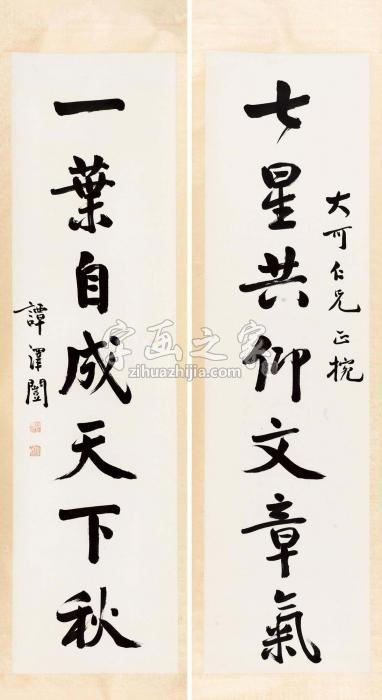 大可仁兄正挽
七星共仰文章氣
一葉自成天下秋
譚澤闓
字画之家
zihuazhijia.com